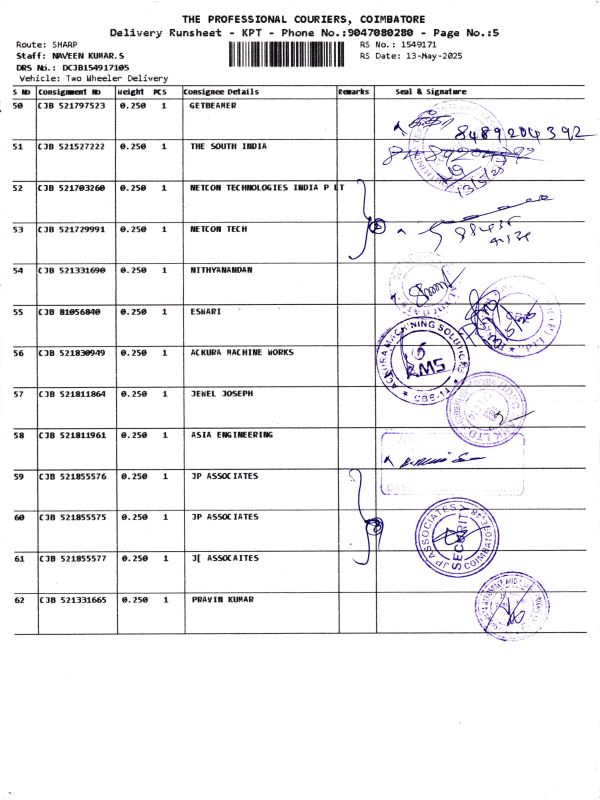 THE PROFESSIONAL COURIERS, COIMBATORE
Delivery Runsheet - KPT - Phone No.:9047080280 - Page No.:5
Route: SHARP RS No.: 1549171
Staff: NAVEEN KUMAR.S RS Date: 13-May-2025
DRS No.: DCJB154917105
Vehicle: Two Wheeler Delivery
S No Consignment No Weight PCS Consignee Details Remarks Seal & Signature
50 CJB 521797523 0.250 1 GETBEAMER
8489204392
51 CJB 521527222 0.250 1 THE SOUTH INDIA
13/5/25
52 CJB 521703260 0.250 1 NETCON TECHNOLOGIES INDIA P LT
53 CJB 521729991 0.250 1 NETCON TECH
54 CJB 521331690 0.250 1 NITHYANANDAN
55 CJB 81056840 0.250 1 ESWARI
56 CJB 521830949 0.250 1 ACKURA MACHINE WORKS
ACKURA MACHINING SOLUTIONS
RMS
CBE-14
57 CJB 521811864 0.250 1 JEWEL JOSEPH
58 CJB 521811961 0.250 1 ASIA ENGINEERING
59 CJB 521855576 0.250 1 JP ASSOCIATES
60 CJB 521855575 0.250 1 JP ASSOCIATES
JP ASSOCIATES
SECURITY
61 CJB 521855577 0.250 1 J[ ASSOCAITES
62 CJB 521331665 0.250 1 PRAVIN KUMAR